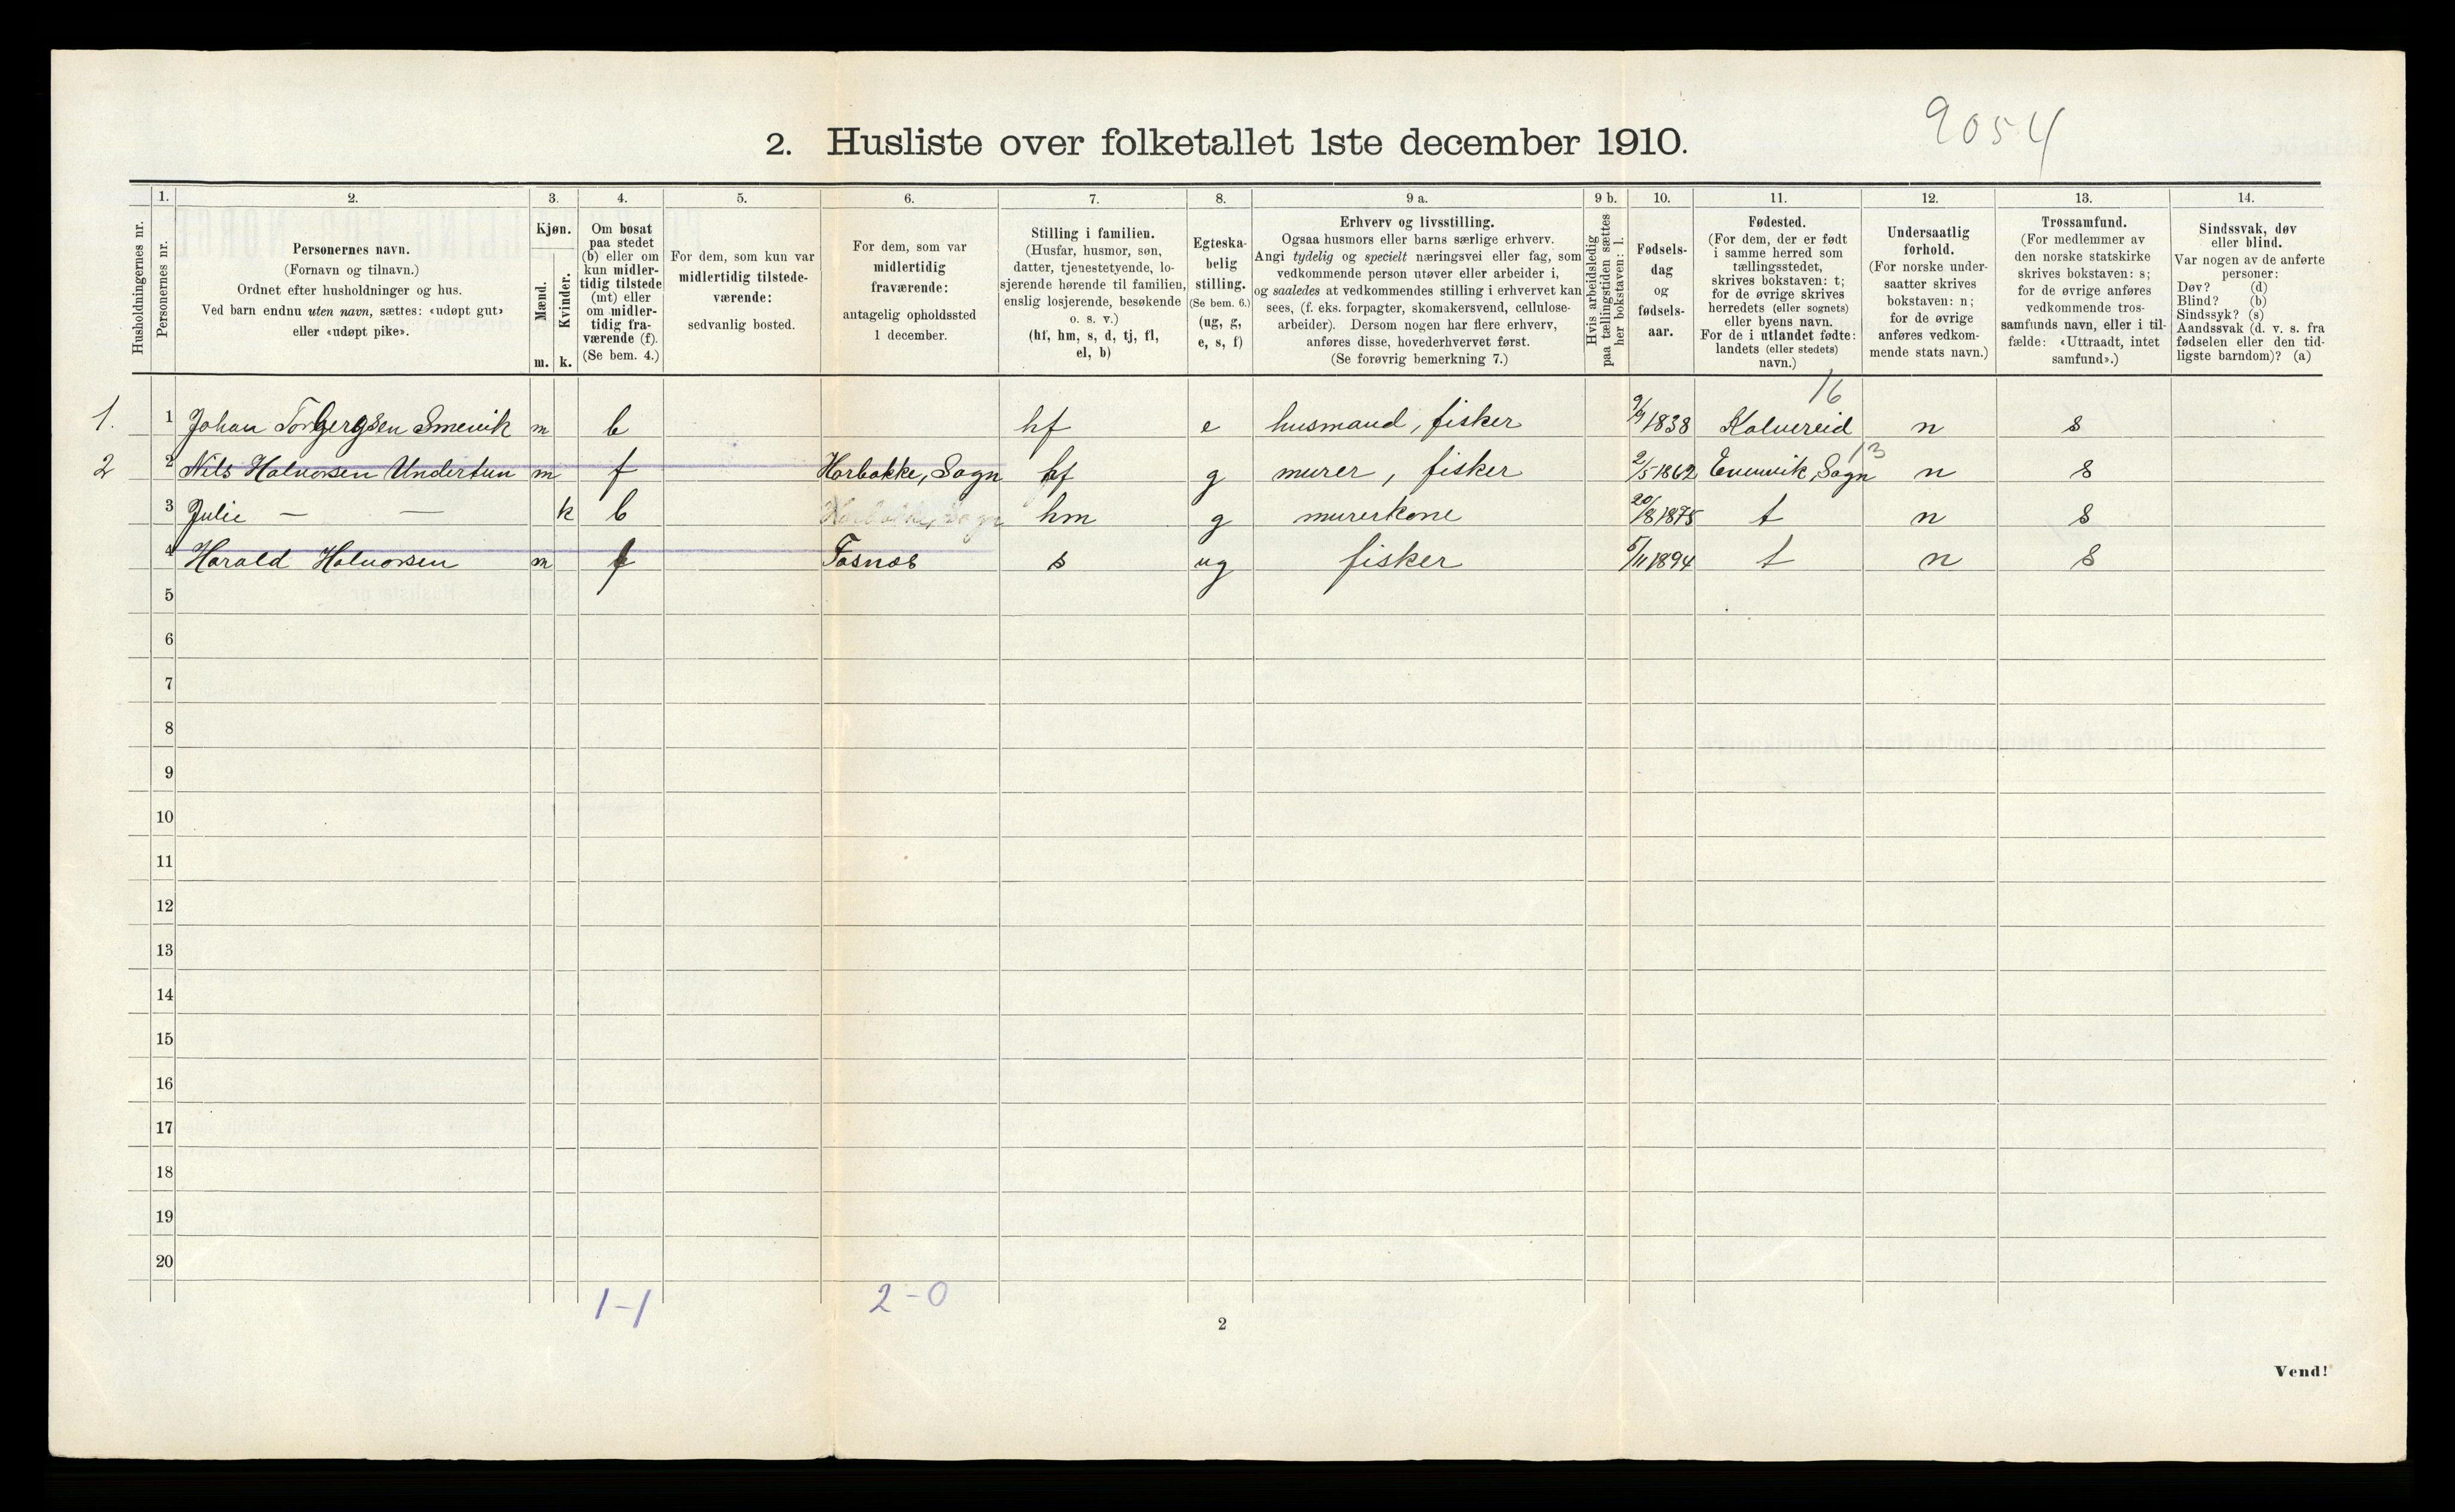 9054
2. Husliste over folketallet 1ste december 1910.
1. 2. 3. 4. 5. 6. 7. 8. 9 a. 9 b. 10. 11. 12. 13. 14.
Husholdningernes nr.
Personernes nr.
Personernes navn.
(Fornavn og tilnavn.)
Ordnet efter husholdninger og hus.
Ved barn endnu uten navn, sættes: «udøpt gut»
eller «udøpt pike».
Kjøn.
Mænd.
Kvinder.
m. k.
Om bosat
paa stedet
(b) eller om
kun midler-
tidig tilstede
(mt) eller
om midler-
tidig fra-
værende (f).
(Se bem. 4.)
For dem, som kun var
midlertidig tilstede-
værende:
sedvanlig bosted.
For dem, som var
midlertidig
fraværende:
antagelig opholdssted
1 december.
Stilling i familien.
(Husfar, husmor, søn,
datter, tjenestetyende, lo-
sjerende hørende til familien,
enslig losjerende, besøkende
o. s. v.)
(hf, hm, s, d, tj, fl,
el, b)
Egteska-
belig
stilling.
(Se bem. 6.)
(ug, g,
e, s, f)
Erhverv og livsstilling.
Ogsaa husmors eller barns særlige erhverv.
Angi tydelig og specielt næringsvei eller fag, som
vedkommende person utøver eller arbeider i,
og saaledes at vedkommendes stilling i erhvervet kan
sees, (f. eks. forpagter, skomakersvend, cellulose-
arbeider). Dersom nogen har flere erhverv,
anføres disse, hovederhvervet først.
(Se forøvrig bemerkning 7.)
Hvis arbeidsledig
paa tællingstiden sættes
her bokstaven: l.
Fødsels-
dag
og
fødsels-
aar.
Fødested.
(For dem, der er født
i samme herred som
tællingsstedet,
skrives bokstaven: t;
for de øvrige skrives
herredets (eller sognets)
eller byens navn.
For de i utlandet fødte:
landets (eller stedets)
navn.)
Undersaatlig
forhold.
(For norske under-
saatter skrives
bokstaven: n;
for de øvrige
anføres vedkom-
mende stats navn.)
Trossamfund.
(For medlemmer av
den norske statskirke
skrives bokstaven: s;
for de øvrige anføres
vedkommende tros-
samfunds navn, eller i til-
fælde: «Uttraadt, intet
samfund».)
Sindssvak, døv
eller blind.
Var nogen av de anførte
personer:
Døv? (d)
Blind? (b)
Sindssyk? (s)
Aandssvak (d. v. s. fra
fødselen eller den tid-
ligste barndom)? (a)
16
1. 1 Johan Torbergsen Smevik m b hf e husmand, fisker 9/9 1838 Kolvereid n s
13
2 2 Nils Halvorsen Undertun m f Harbakke, Sogn hf g murer, fisker 2/5 1862 Evenvik, Sogn n s
3 Julie — — k b Harbakke, Sogn hm g murerkone 20/8 1875 t n s
4 Harald Halvorsen m f Fosnes s ug fisker 5/11 1894 t n s
5
6
7
8
9
10
11
12
13
14
15
16
17
18
19
20
1-1 2-0
2
Vend!